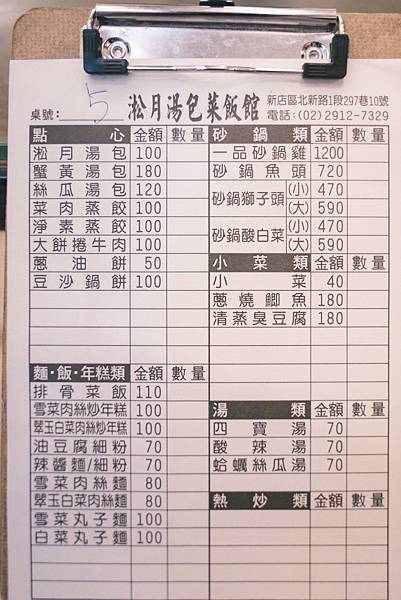 新店區北新路1段297巷10號
桌號: 5 淞月湯包菜飯館 電話:(02)2912-7329
點心 金額 數量
淞月湯包 100
蟹黃湯包 180
絲瓜湯包 120
菜肉蒸餃 100
淨素蒸餃 100
大餅捲牛肉 100
蔥油餅 50
豆沙鍋餅 100
麵·飯·年糕類 金額 數量
排骨菜飯 110
雪菜肉絲炒年糕 100
翠玉白菜肉絲炒年糕 100
油豆腐細粉 70
辣醬麵/細粉 70
雪菜肉絲麵 80
翠玉白菜肉絲麵 80
雪菜丸子麵 100
白菜丸子麵 100
砂鍋類 金額 數量
一品砂鍋雞 1200
砂鍋魚頭 720
砂鍋獅子頭 (小) 470
(大) 590
砂鍋酸白菜 (小) 470
(大) 590
小菜類 金額 數量
小菜 40
蔥燒鯽魚 180
清蒸臭豆腐 180
湯類 金額 數量
四寶湯 70
酸辣湯 70
蛤蠣絲瓜湯 70
熱炒類 金額 數量